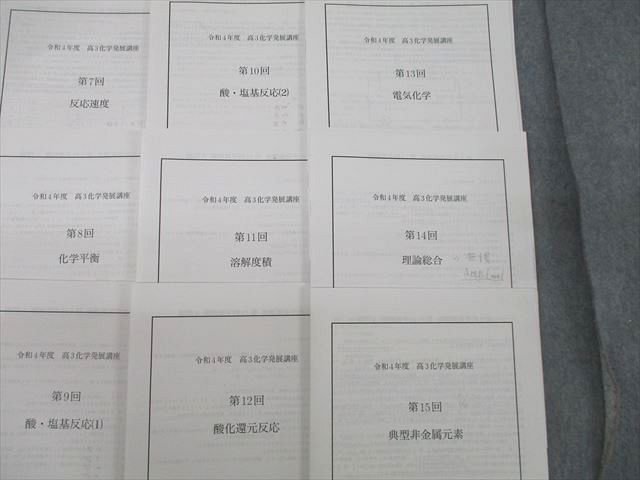 令和4年度 高3化学発展講座
第7回
反応速度
令和4年度 高3化学発展講座
第10回
酸・塩基反応(2)
令和4年度 高3化学発展講座
第13回
電気化学
令和4年度 高3化学発展講座
第8回
化学平衡
令和4年度 高3化学発展講座
第11回
溶解度積
令和4年度 高3化学発展講座
第14回
理論総合
令和4年度 高3化学発展講座
第9回
酸・塩基反応(1)
令和4年度 高3化学発展講座
第12回
酸化還元反応
令和4年度 高3化学発展講座
第15回
典型非金属元素